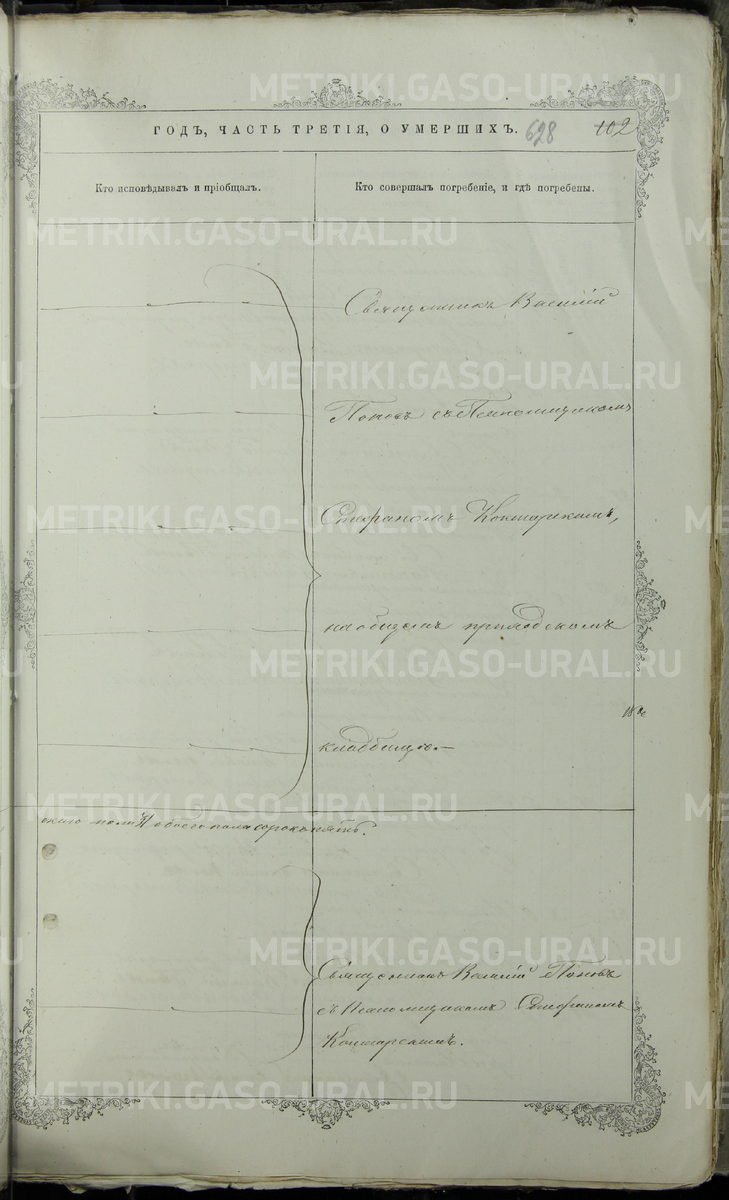 METRIKI.GASO-URAL.RU
ГОДЪ, ЧАСТЬ ТРЕТІЯ, О УМЕРШИХЪ. 628 102
Кто исповѣдывалъ и пріобщалъ.
Кто совершалъ погребеніе, и гдѣ погребены.
Священникъ Василій
Поповъ съ Псаломщикомъ
Стефаномъ
на общемъ приходскомъ
кладбищѣ.—
обоего пола сорокъ пять.
Священникъ Василій Поповъ
съ Псаломщикомъ Стефаномъ